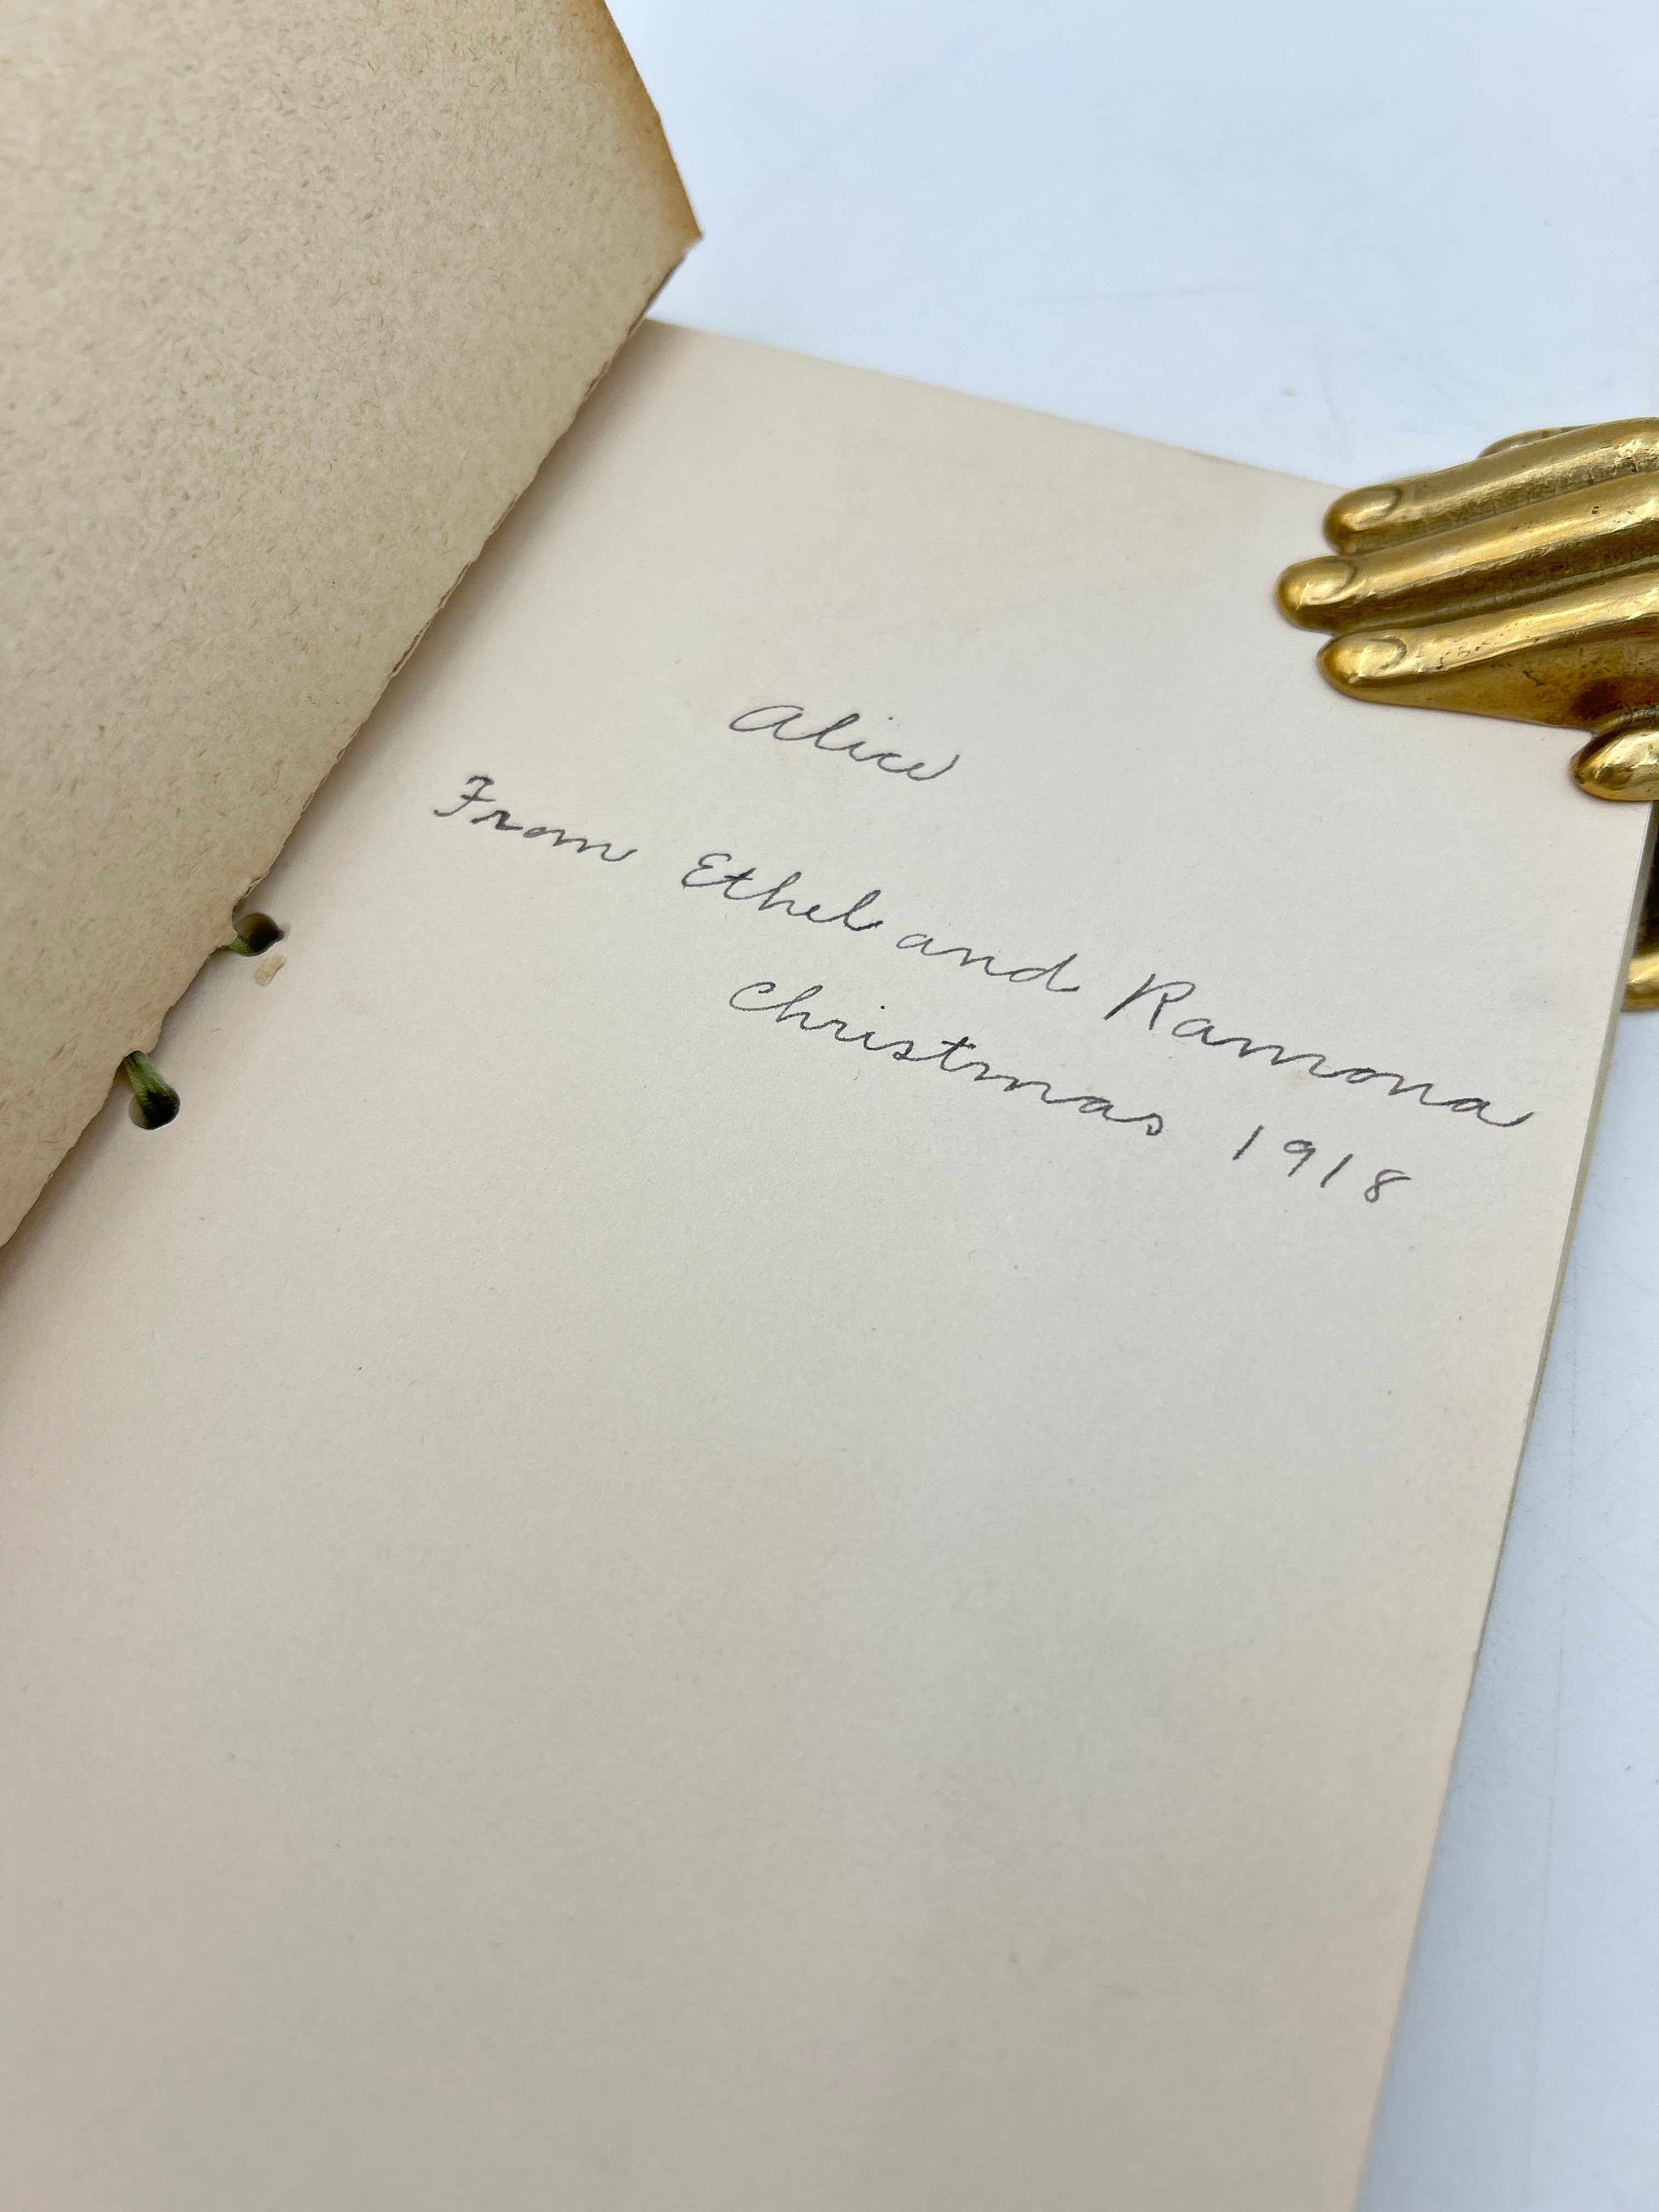 Alice
From Ethel and Ramona
Christmas 1918